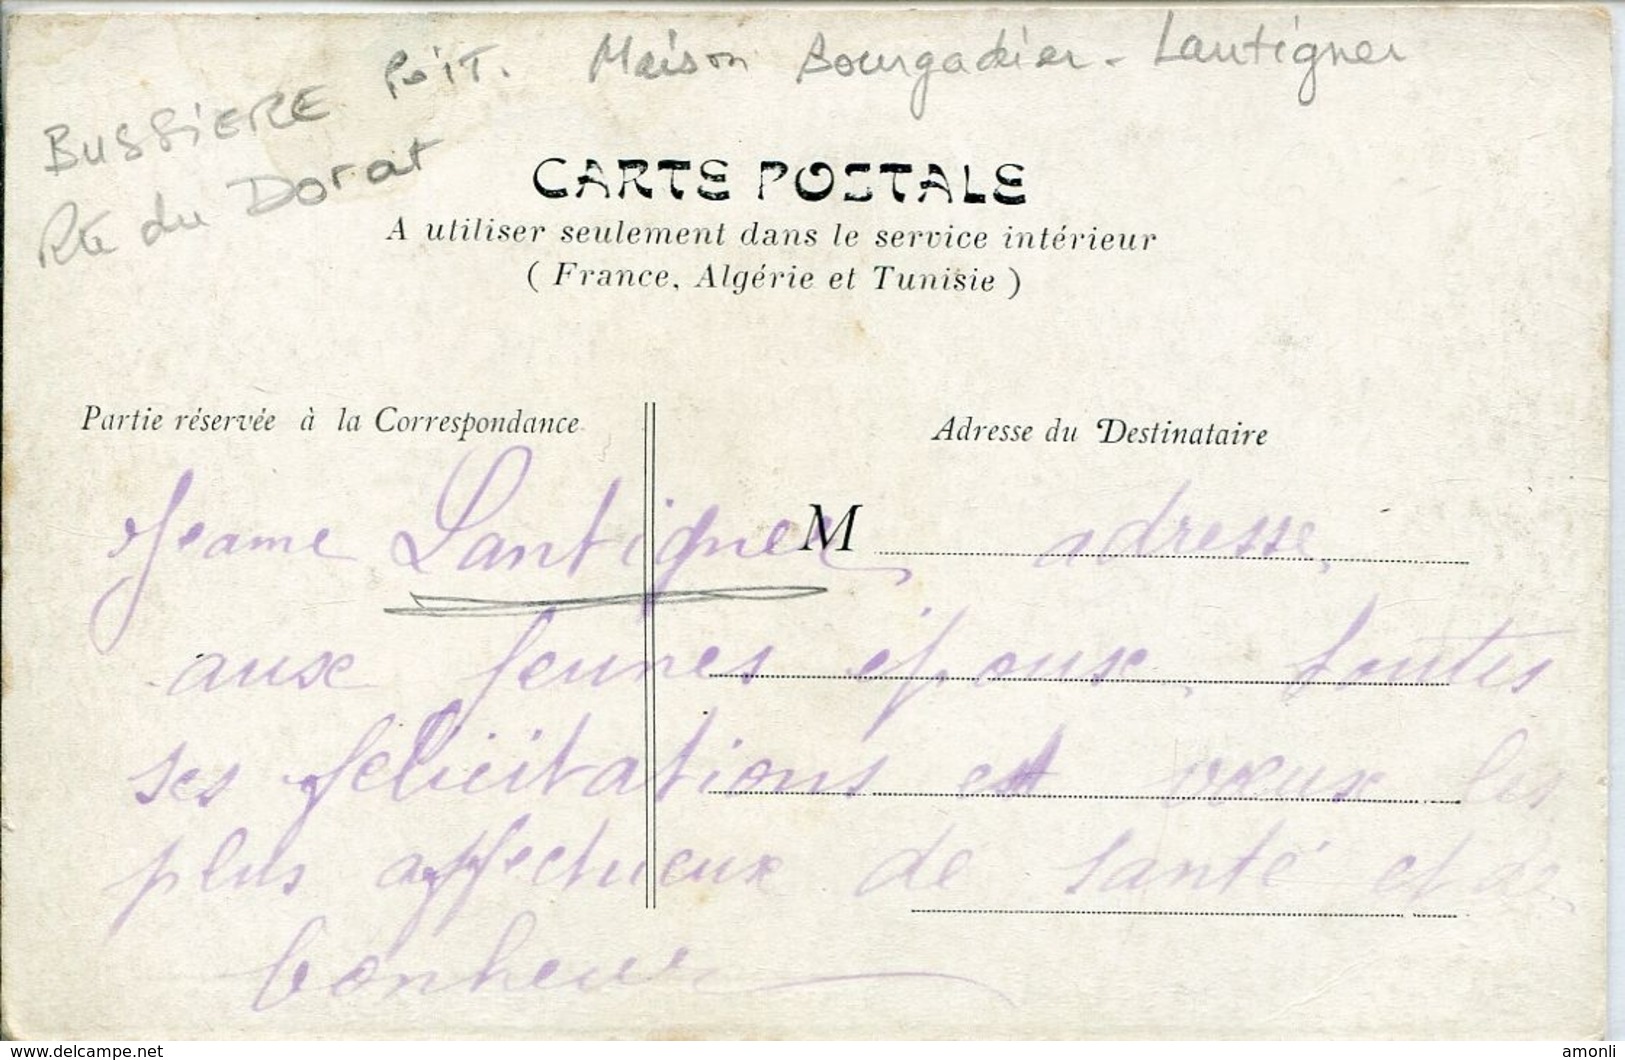 BUSSIERE Poit. Maison Bourgadier - Lantigner
Rte du Dorat
CARTE POSTALE
A utiliser seulement dans le service intérieur
( France, Algérie et Tunisie )
Partie réservée à la Correspondance
Adresse du Destinataire
M
Jeanne Lantigner adresse
aux jeunes époux toutes
ses félicitations et vœux les
plus affectueux de santé et de
bonheur
delcampe.net
amonli